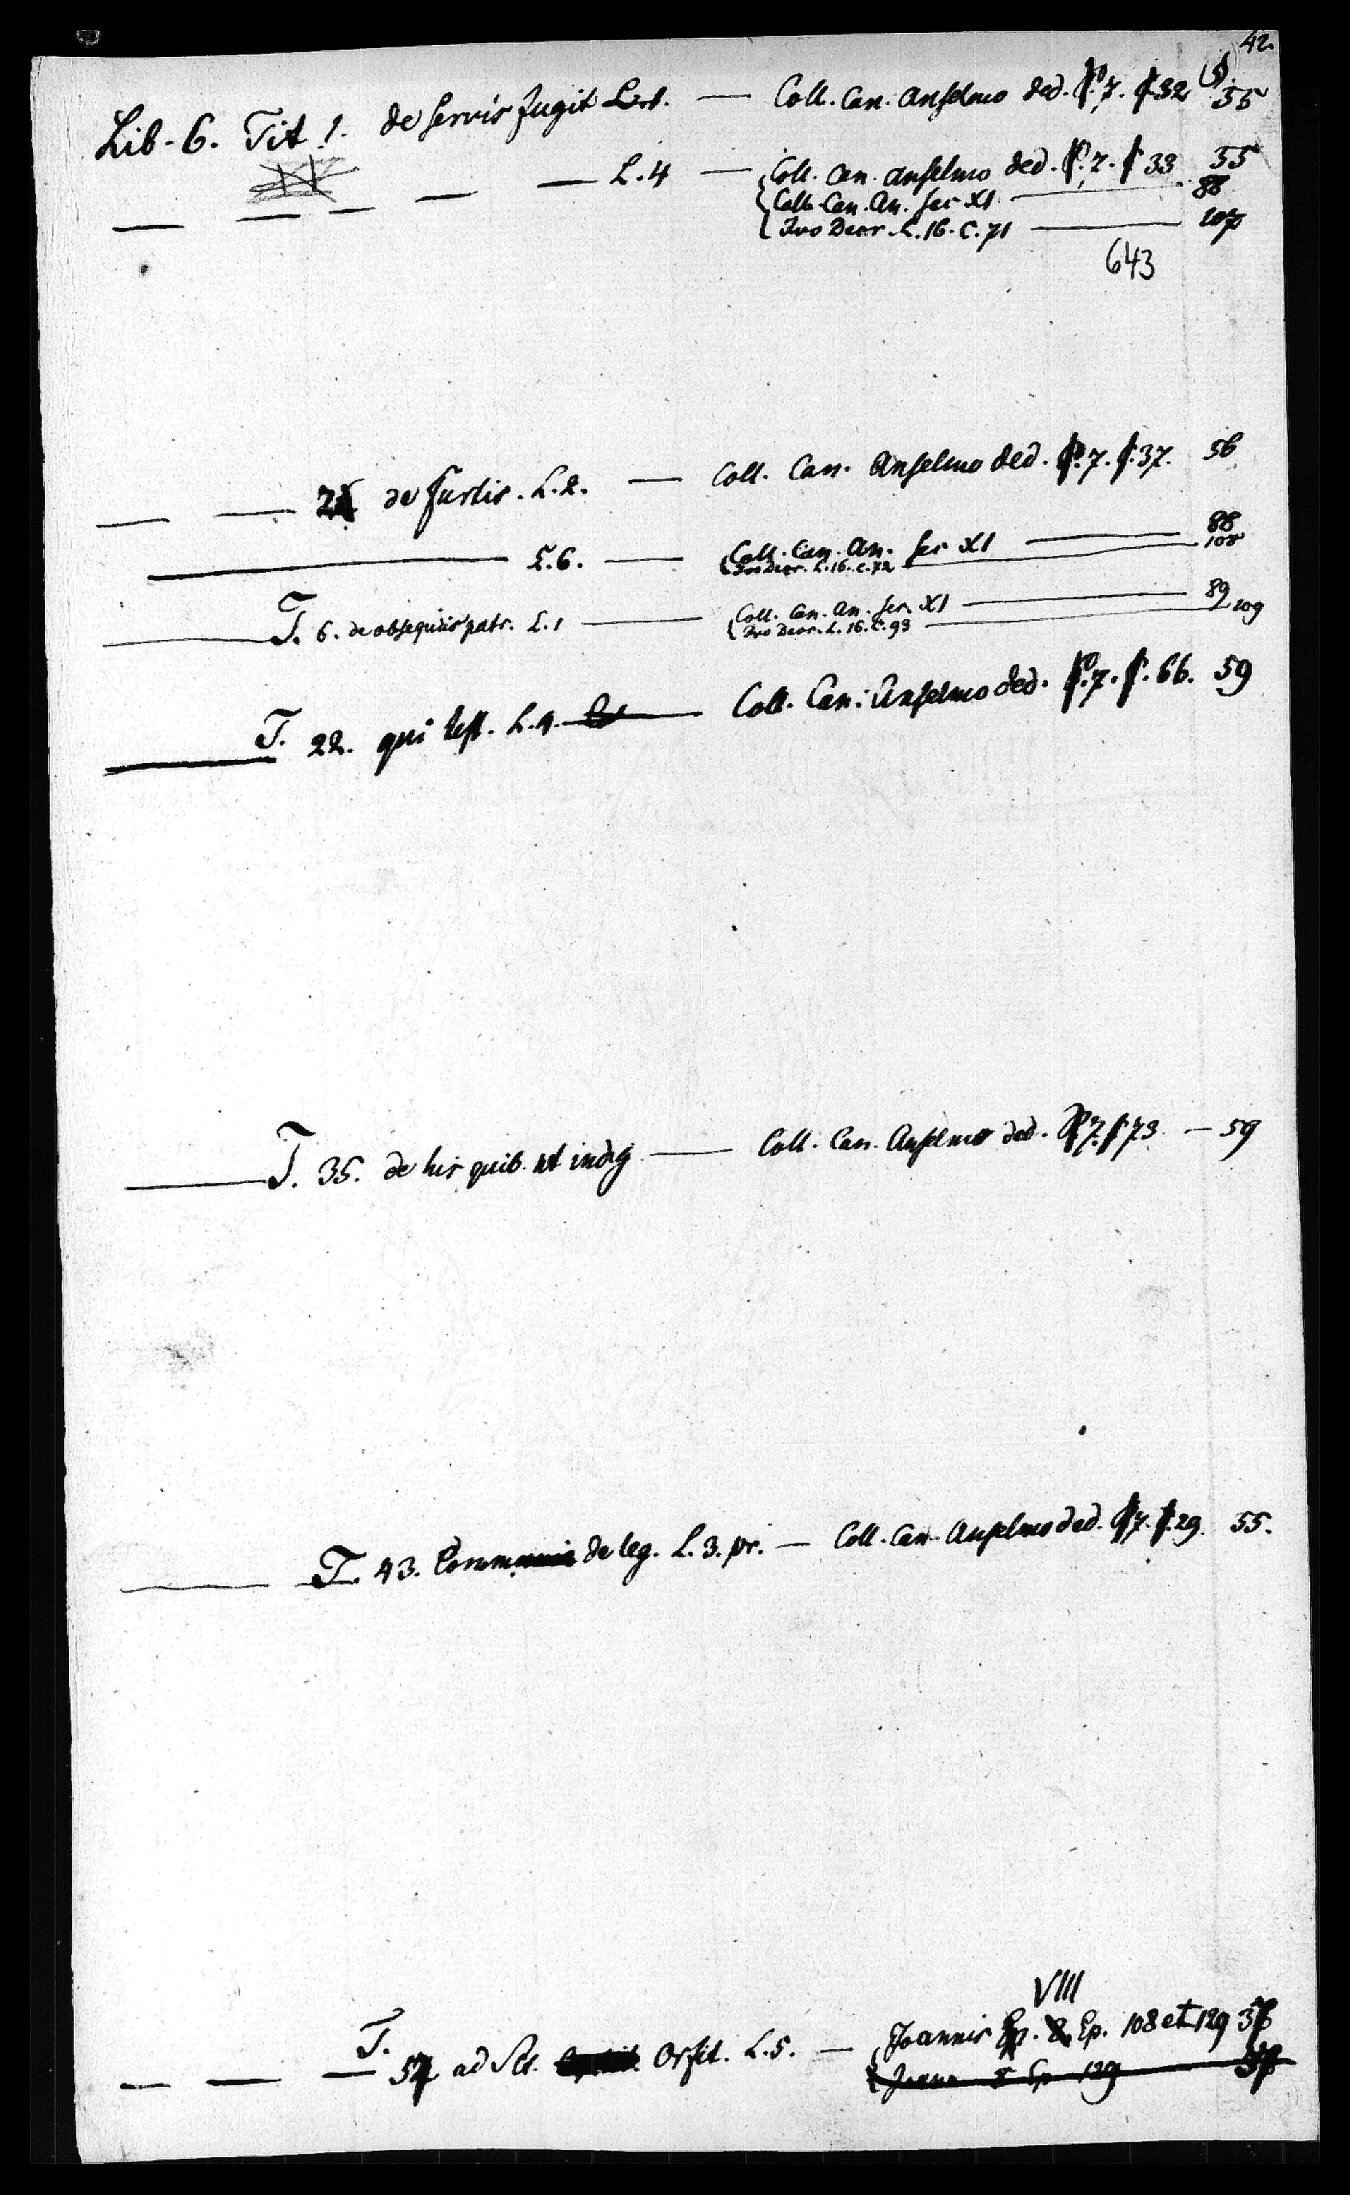 42.
Lib. 6. Tit 1. de servis fugit L. 1. — Coll. Can. Anselmo ded. P. 7. § 32 55
— — — — — L. 4 — Coll. Can. Anselmo ded. P. 7. § 33 55
Coll. Can. An. sec XI — 88
Ivo Decr. L. 16. C. 71 — 107
643
— — 2 de furtis. L. 2. — Coll. Can. Anselmo ded. P. 7. §. 37. 56
— L. 6. — Coll. Can. An. sec XI — 88
Ivo Decr. L. 16. c. 72 — 108
— T. 6. de obsequiis patr. L. 1 — Coll. Can. An. sec. XI — 89
Ivo Decr. L. 16. C. 93 — 109
— T. 22. qui test. L. 4. — Coll. Can. Anselmo ded. P. 7. §. 66. 59
— T. 35. de his quib. ut indig — Coll. Can. Anselmo ded. P. 7. § 73 — 59
— T. 43. Communia de leg. L. 3. pr. — Coll. Can. Anselmo ded. P. 7. §. 29 55.
VIII
— — — T. 57 ad Sct. Orfit. L. 5. — Joannis Ep. 108 et 129 37
Joann Ep 129 37